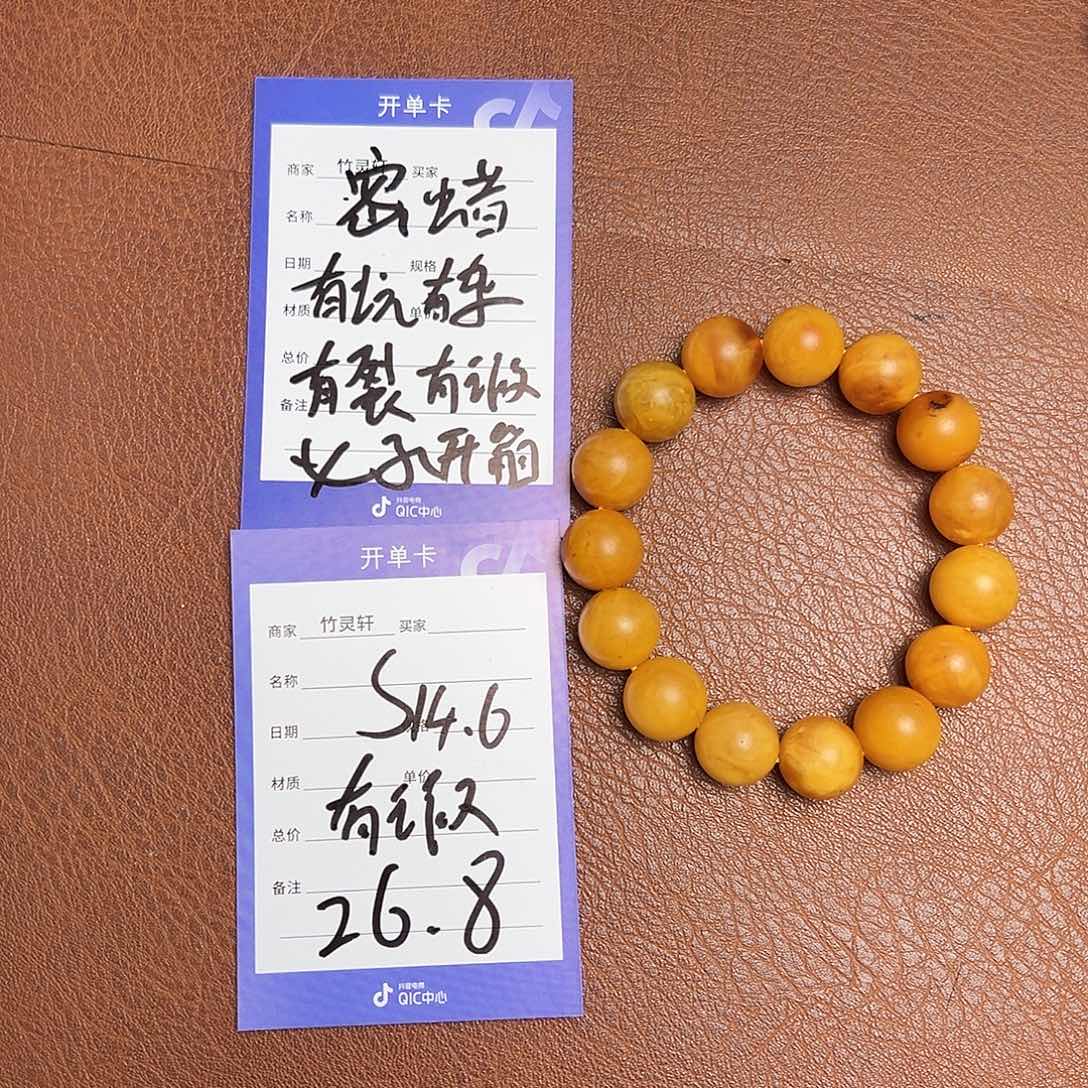 开单卡
商家 竹灵轩 买家
密蜡
名称
日期 规格
有坑有杂
材质 单价
总价
有裂 有瑕
备注
开箱
抖音电商
QIC中心
开单卡
商家 竹灵轩 买家
名称
S14.6
日期
材质 单价
有瑕
总价
备注
26.8
抖音电商
QIC中心